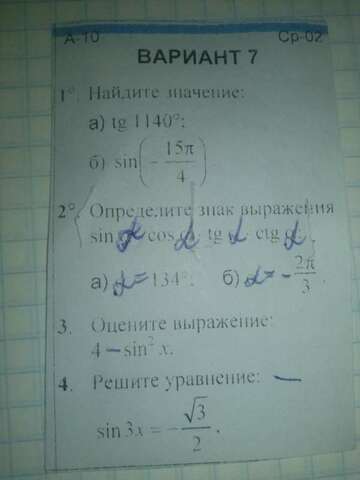 А-10 Ср-02
ВАРИАНТ 7
1°. Найдите значение:
а) tg 1140°;
б) sin(−15π/4).
2°. Определите знак выражения
sin α cos α tg α ctg α,
а) α = 134°; б) α = −2π/3.
3. Оцените выражение:
4 − sin² x.
4. Решите уравнение: —
sin 3x = −√3/2.